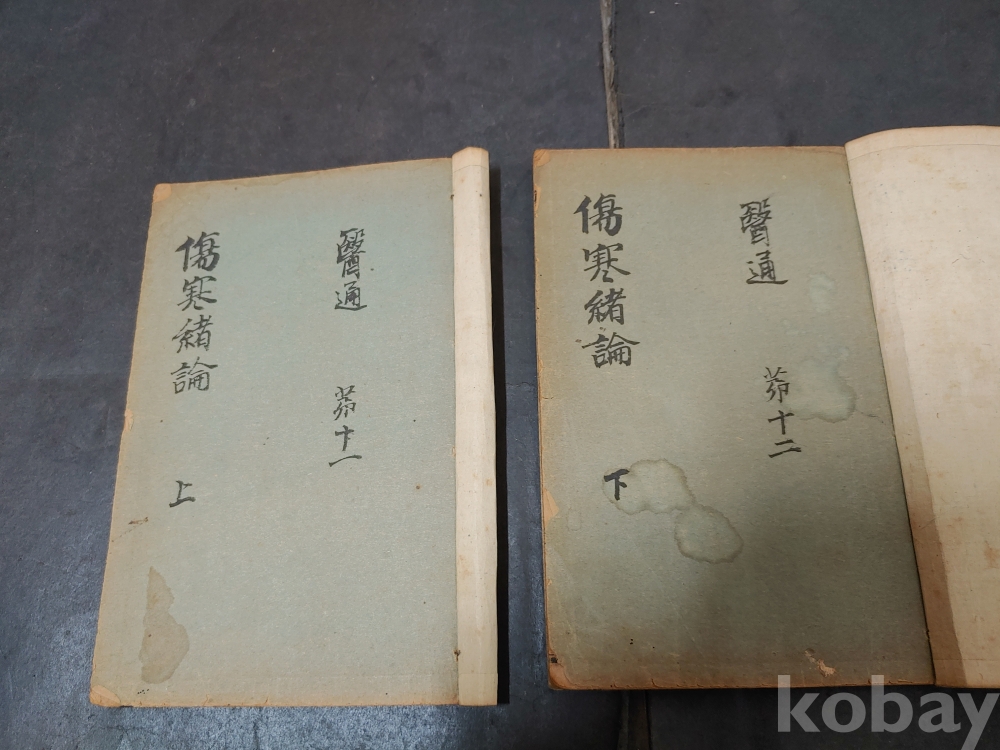 醫通 茆十一
傷寒緒論 上
醫通 茆十二
傷寒緒論 下
kobay